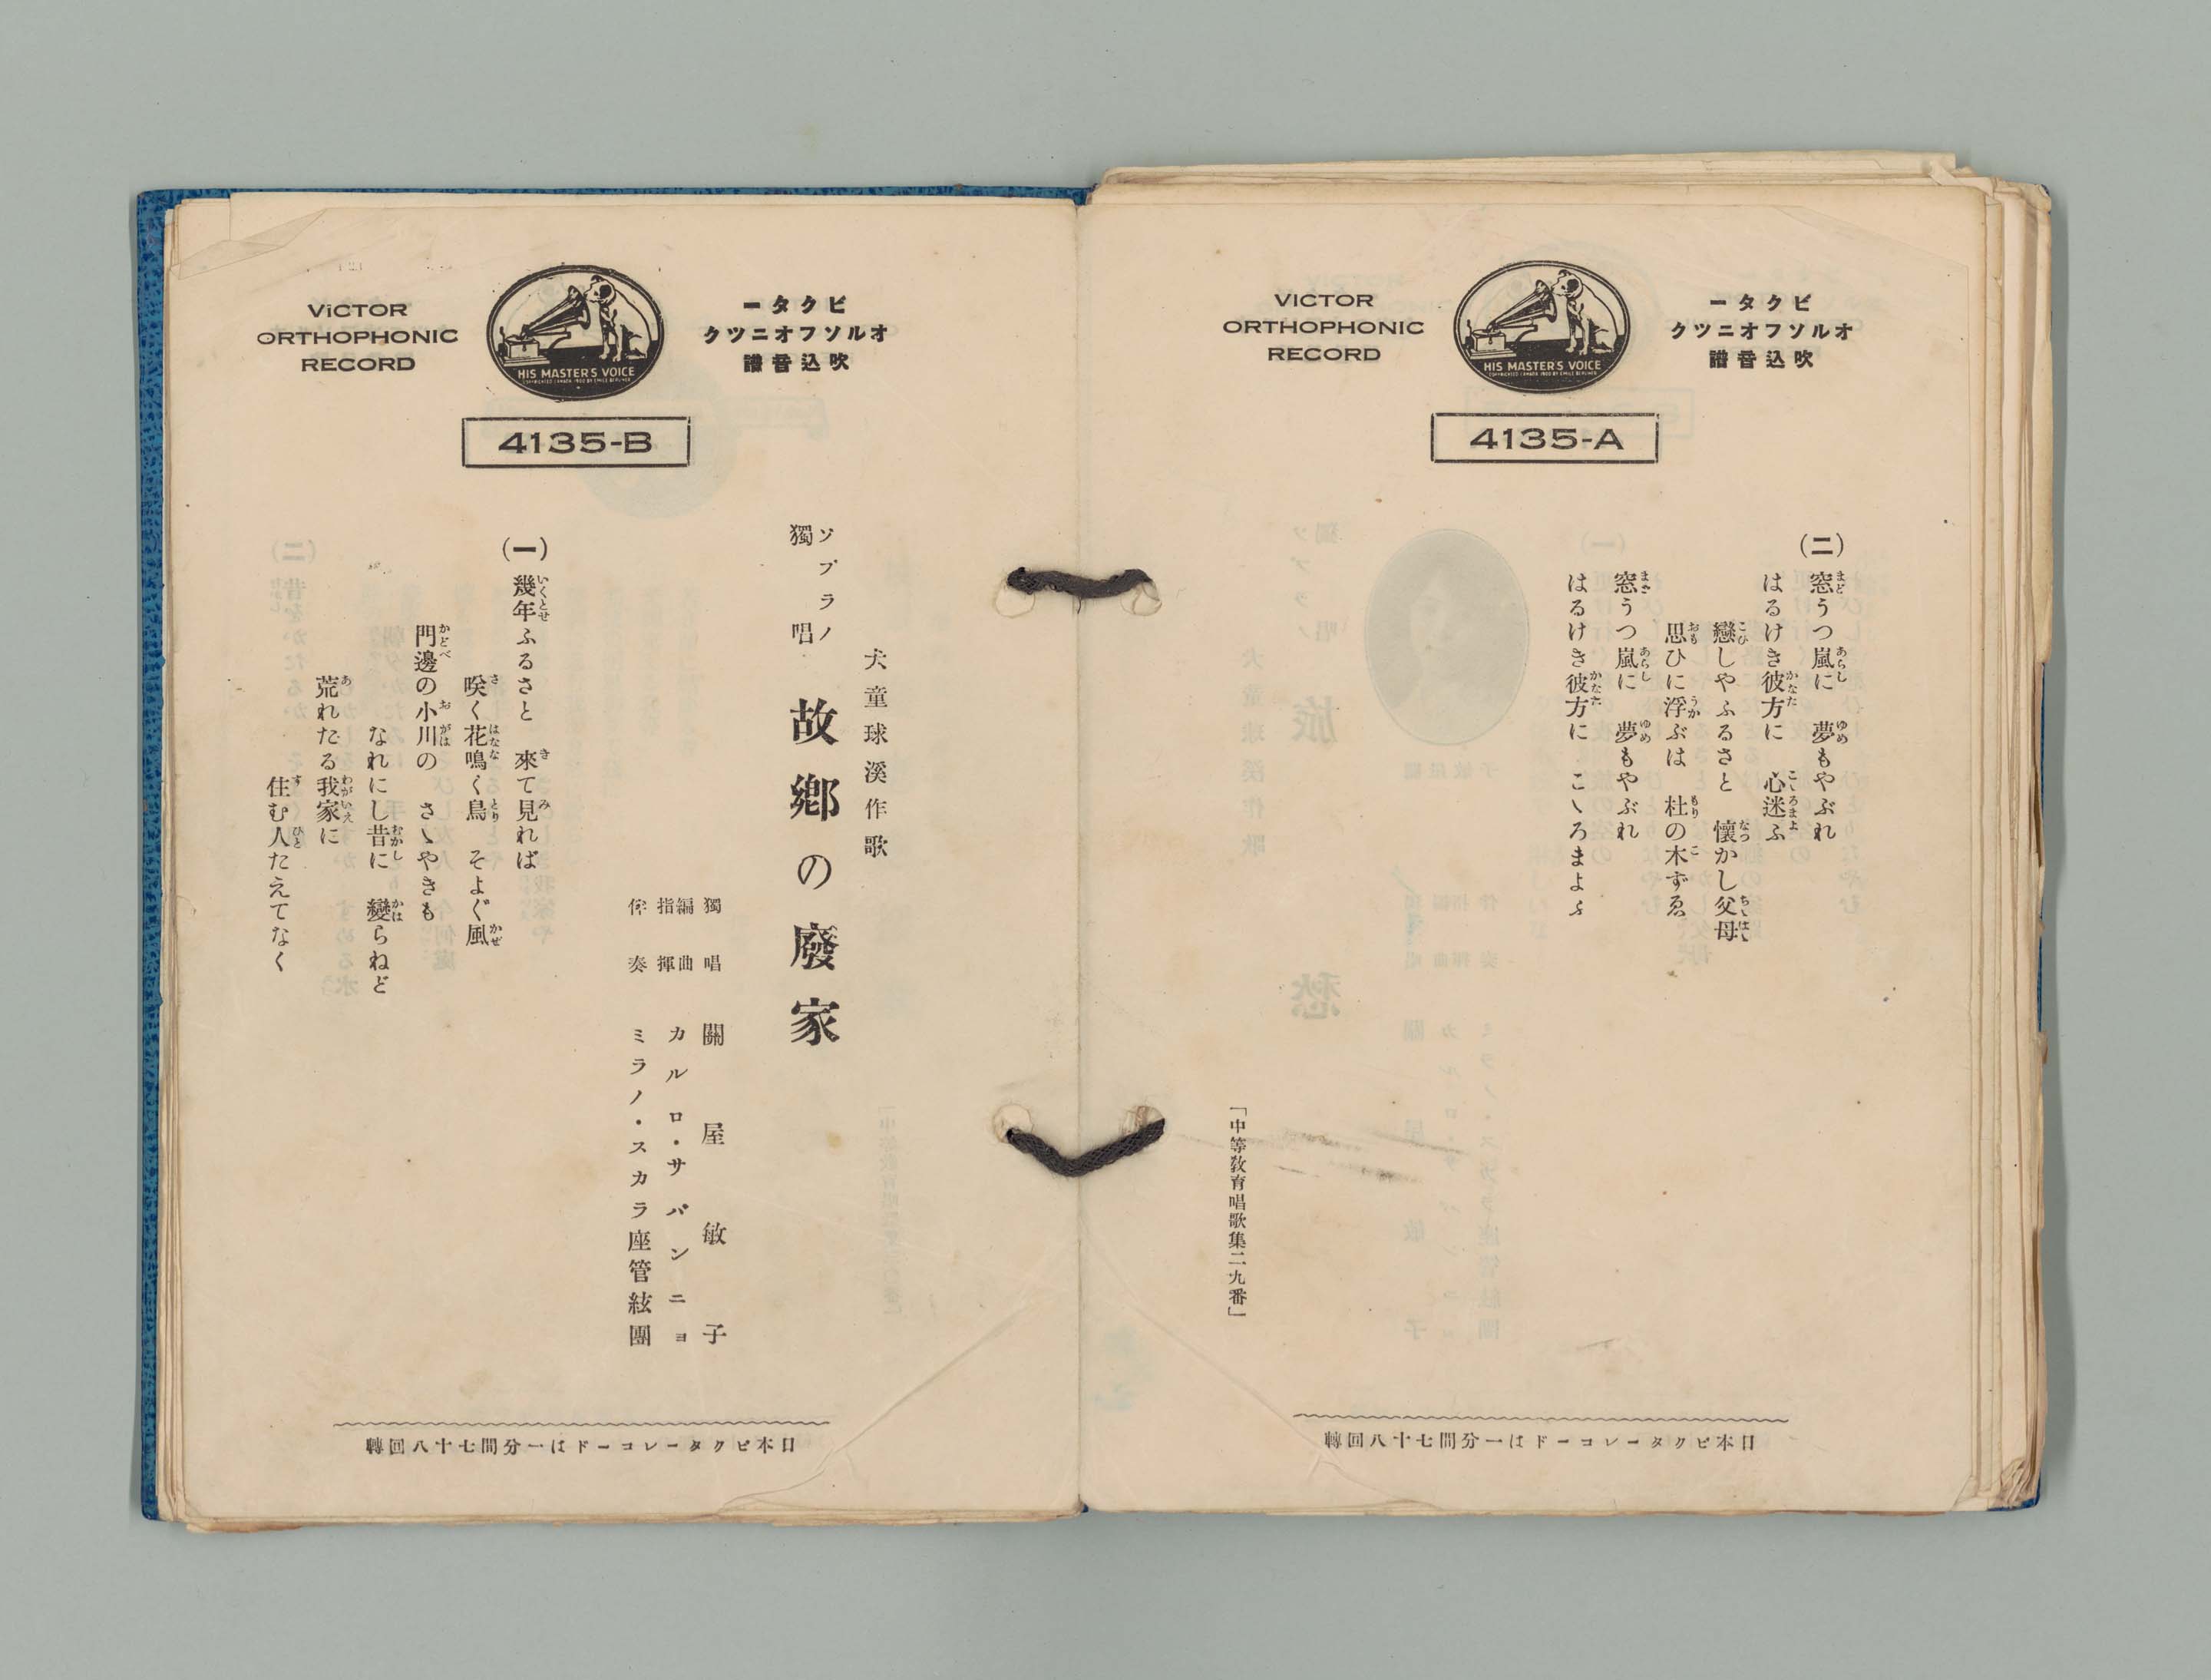 VICTOR
ORTHOPHONIC
RECORD
HIS MASTER'S VOICE
ビクター
オルソフオニツク
吹込音譜
4135-A
(二)
窓うつ嵐に　夢もやぶれ
はるけき彼方に　心迷ふ
戀しやふるさと　懷かし父母
思ひに浮ぶは　杜の木ずゑ
窓うつ嵐に　夢もやぶれ
はるけき彼方に　こゝろまよふ
「中等敎育唱歌集二九番」
日本ビクターレコードは一分間七十八回轉
ViCTOR
ORTHOPHONIC
RECORD
HIS MASTER'S VOICE
ビクター
オルソフオニツク
吹込音譜
4135-B
犬童球溪作歌
ソプラノ
獨唱
故鄕の廢家
獨唱　關屋敏子
編曲
指揮
カルロ・サバンニョ
伴奏　ミラノ・スカラ座管絃團
(一)
幾年ふるさと　來て見れば
咲く花鳴く鳥　そよぐ風
門邊の小川の　さゝやきも
なれにし昔に　變らねど
荒れたる我家に
住む人たえてなく
日本ビクターレコードは一分間七十八回轉